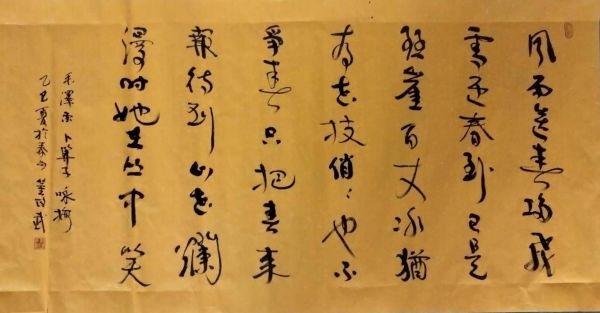 风雨送春归飛
雪迎春到已是
懸崖百丈冰猶
有花枝俏俏也不
爭春只把春来
報待到山花爛
漫时她在丛中笑
毛澤东 卜算子 咏梅
乙巳夏於泰山